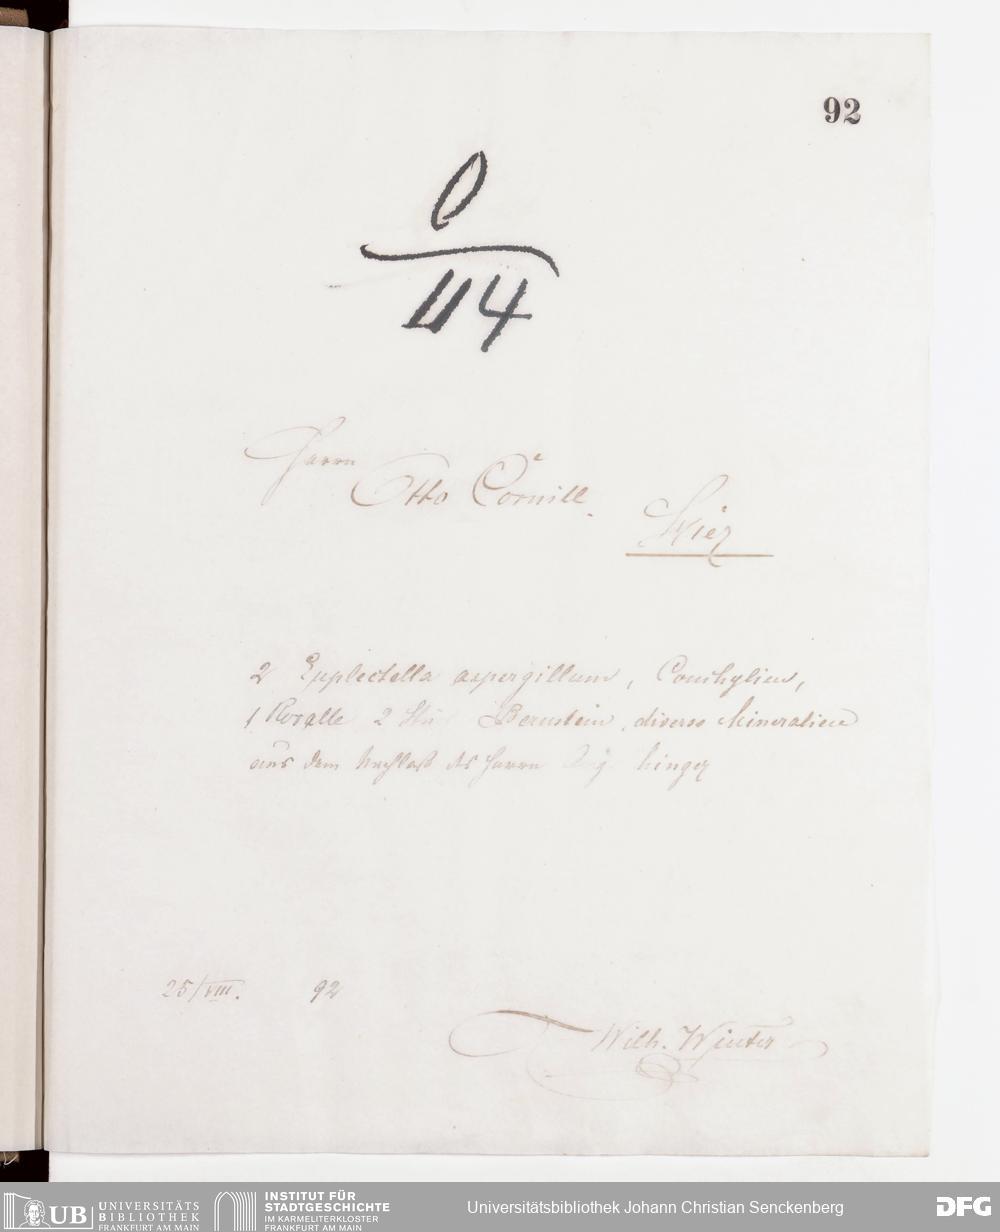 92
0
44
Herrn
Otto Cornill.
Hier
2 Eyplectella aspergillum, Conchylien,
1 Koralle 2 Stü Bernstein, diverse Mineralien
aus dem Nachlaß des Herrn
25/VIII. 92
Wilh. Winter
UB UNIVERSITÄTS
BIBLIOTHEK
FRANKFURT AM MAIN
INSTITUT FÜR
STADTGESCHICHTE
IM KARMELITERKLOSTER
FRANKFURT AM MAIN
Universitätsbibliothek Johann Christian Senckenberg
DFG